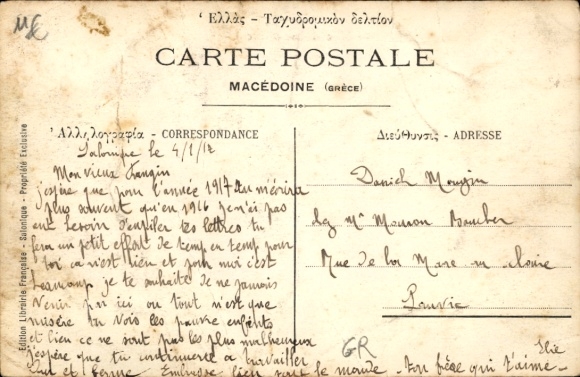 Ἑλλὰς – Ταχυδρομικὸν δελτίον
CARTE POSTALE
MACÉDOINE (GRÈCE)
Ἀλληλογραφία - CORRESPONDANCE
Διεύθυνσις - ADRESSE
Edition Librairie Française - Salonique - Propriété Exclusive
le 4/1/17
Mon vieux
j'espère que pour l'année 1917 tu
plus souvent qu'en 1916 je n'ai pas
eu besoin d'empiler tes lettres tu
fera un petit effort de temp en temp pour
toi ca n'est rien et pour moi c'est
beaucoup je te souhaite de ne jamais
venir par ici ou tout n'est que
misère tu vois les pauvre enfants
et bien ce ne sont pas les plus malheureux
j'espère que tu continuera a travailler
et ferme Embrasse bien tout le monde - ton frère qui t'aime -
Elie
Daniel Mougin
chez Mr
Rue de la
GR